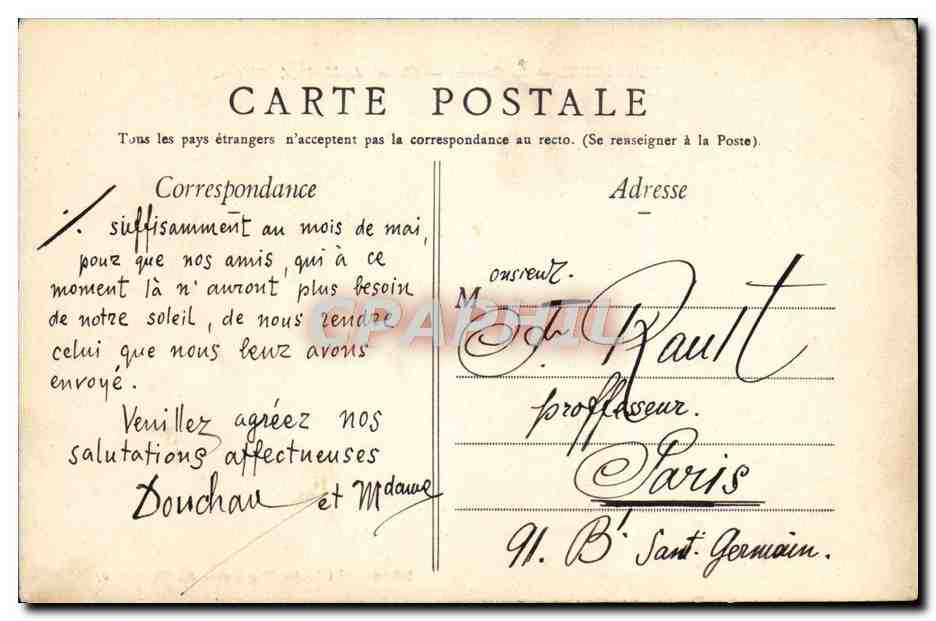 CARTE POSTALE
Tous les pays étrangers n'acceptent pas la correspondance au recto. (Se renseigner à la Poste).
Correspondance
./. suffisamment au mois de mai,
pour que nos amis, qui à ce
moment là n'auront plus besoin
de notre soleil, de nous rendre
celui que nous leur avons
envoyé.
Veuillez agréez nos
salutations affectueuses
Douchau et Mdame
Adresse
Monsieur.
Rault
proffesseur.
Paris
91. Bd Sant-Germain.
CPAPHIL